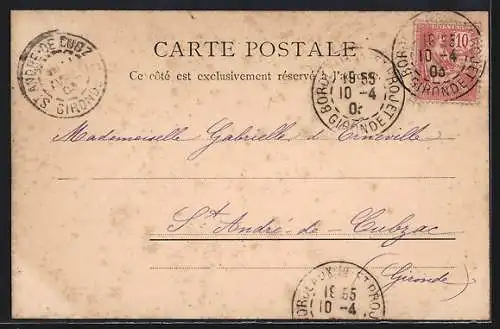 CARTE POSTALE
Ce côté est exclusivement réservé à l'a
ST ANDRE-DE-CUBZ
GIRONDE
BORDEAUX
GIRONDE
19 55
10 - 4
BORD
GIRONDE
19 55
10 - 4
03
10
Mademoiselle Gabrielle d'
St André-de-Cubzac
(Gironde)
BORDEAUX
19 55
10 - 4